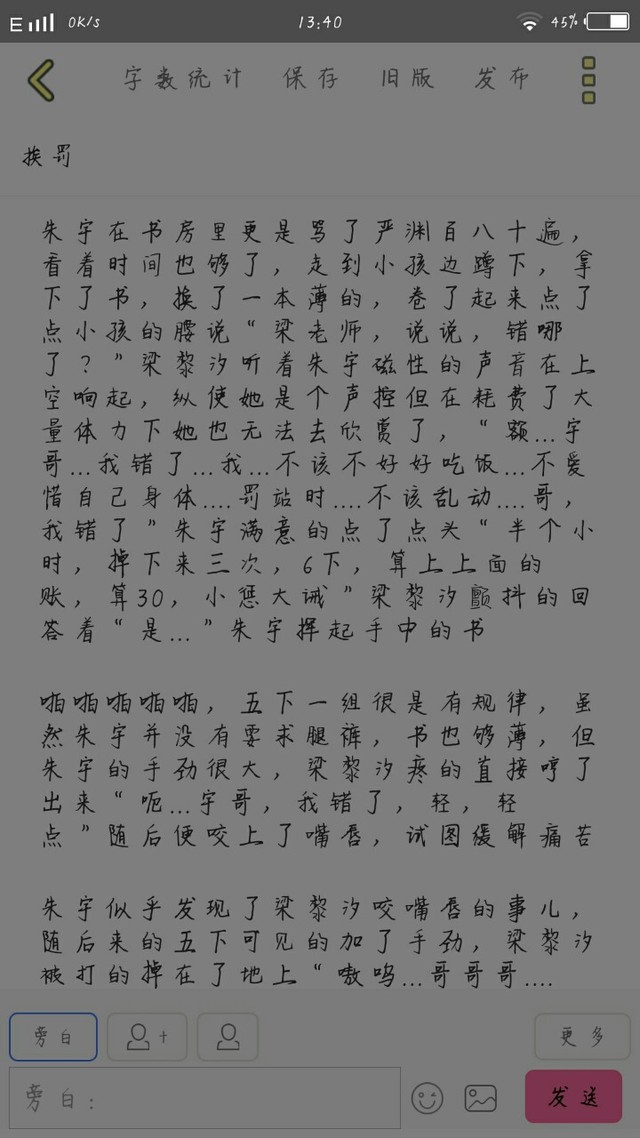 E 0K/s 13:40 45%
字数统计 保存 旧版 发布
挨罚
朱宇在书房里更是骂了严渊百八十遍，
看着时间也够了，走到小孩边蹲下，拿
下了书，换了一本薄的，卷了起来点了
点小孩的腰说“梁老师，说说，错哪
了？”梁黎汐听着朱宇磁性的声音在上
空响起，纵使她是个声控但在耗费了大
量体力下她也无法去欣赏了，“额...宇
哥...我错了...我...不该不好好吃饭...不爱
惜自己身体....罚站时....不该乱动....哥，
我错了”朱宇满意的点了点头“半个小
时，掉下来三次，6下，算上上面的
账，算30，小惩大诫”梁黎汐颤抖的回
答着“是...”朱宇挥起手中的书
啪啪啪啪啪，五下一组很是有规律，虽
然朱宇并没有要求腿裤，书也够薄，但
朱宇的手劲很大，梁黎汐疼的直接哼了
出来“呃...宇哥，我错了，轻，轻
点”随后便咬上了嘴唇，试图缓解痛苦
朱宇似乎发现了梁黎汐咬嘴唇的事儿，
随后来的五下可见的加了手劲，梁黎汐
被打的掉在了地上“嗷呜...哥哥哥....
旁白 + 更多
旁白： 发送